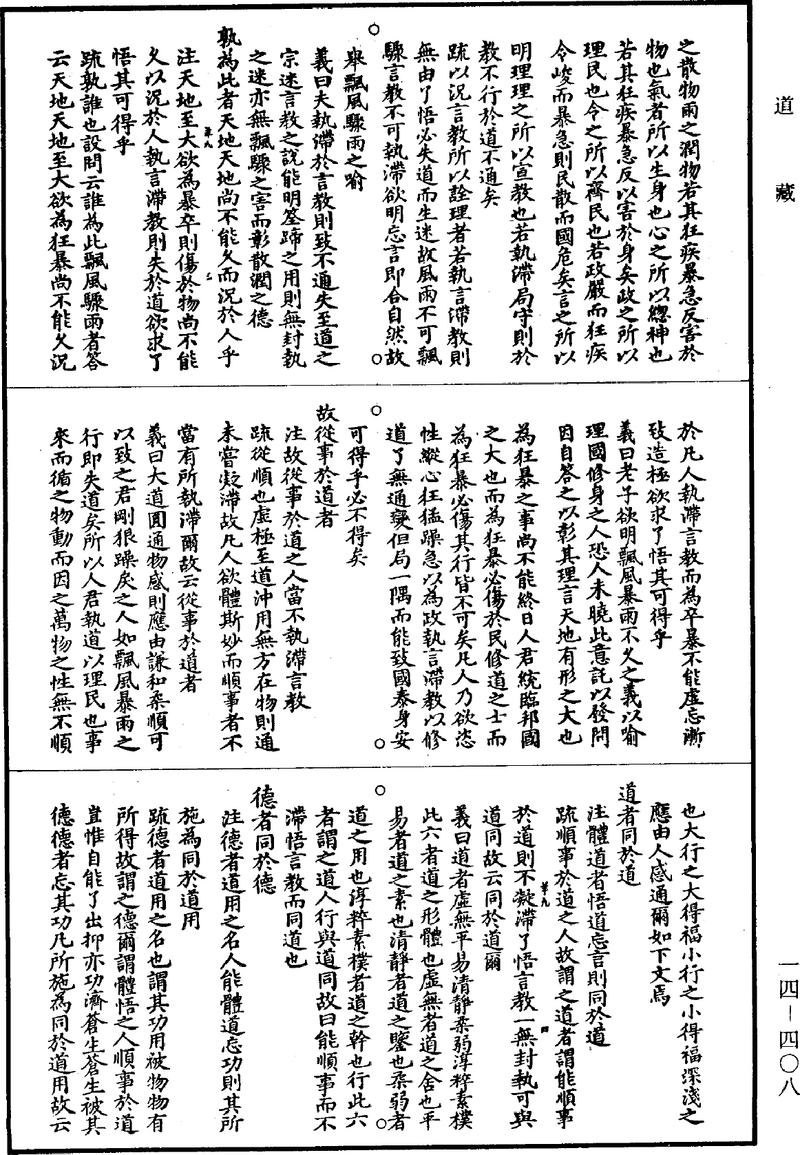 道藏
一四－四〇八
之散物雨之潤物若其狂疾暴急反害於
物也氣者所以生身也心之所以緫神也
若其狂疾暴急反以害於身矣政之所以
理民也令之所以齊民也若政嚴而狂疾
令峻而暴急則民散而國危矣言之所以
明理理之所以宣教也若執滯局守則於
教不行於道不通矣
疏以況言教所以詮理者若執言滯教則
無由了悟必失道而生迷故風雨不可飄
驟言教不可執滯欲明忘言即合自然故
舉飄風驟雨之喻
義曰夫執滯於言教則致不通失至道之
宗迷言教之說能明筌蹄之用則無封執
之迷亦無飄驟之害而彰散潤之德
孰為此者天地天地尚不能久而況於人乎
注天地至大欲為暴卒則傷於物尚不能
久以況於人執言滯教則失於道欲求了
悟其可得乎
疏孰誰也設問云誰為此飄風驟雨者答
云天地天地至大欲為狂暴尚不能久況
於凡人執滯言教而為卒暴不能虛忘漸
致造極欲求了悟其可得乎
義曰老子欲明飄風暴雨不久之義以喻
理國修身之人恐人未曉此意託以發問
因自答之以彰其理言天地有形之大也
為狂暴之事尚不能終日人君統臨邦國
之大也而為狂暴必傷於民修道之士而
為狂暴必傷其行皆不可矣凡人乃欲恣
性縱心狂猛躁急以為政執言滯教以修
道了無通變但局一隅而能致國泰身安
可得乎必不得矣
故從事於道者
注故從事於道之人當不執滯言教
疏從順也虛極至道沖用無方在物則通
未嘗凝滯故凡人欲體斯妙而順事者不
當有所執滯爾故云從事於道者
義曰大道圓通物感則應由謙和柔順可
以致之君剛狠躁矣之人如飄風暴雨之
行即失道矣所以人君執道以理民也事
來而循之物動而因之萬物之性無不順
也大行之大得福小行之小得福深淺之
應由人感通爾如下文焉
道者同於道
注體道者悟道忘言則同於道
疏順事於道之人故謂之道者謂能順事
於道則不凝滯了悟言教一無封執可與
道同故云同於道爾
義曰道者虛無平易清靜柔弱淳粹素樸
此六者道之形體也虛無者道之舍也平
易者道之素也清靜者道之鑒也柔弱者
道之用也淳粹素樸者道之幹也行此六
者謂之道人行與道同故曰能順事而不
滯悟言教而同道也
德者同於德
注德者道用之名人能體道忘功則其所
施為同於道用
疏德者道用之名也謂其功用被物物有
所得故謂之德爾謂體悟之人順事於道
豈惟自能了出抑亦功濟蒼生蒼生被其
德德者忘其功凡所施為同於道用故云